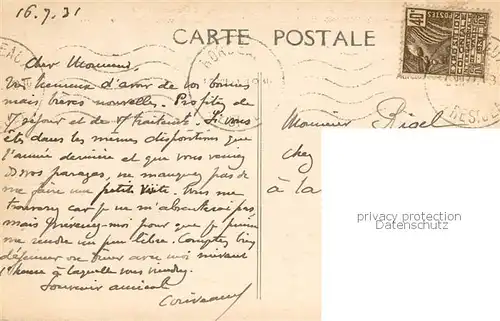 16.7.31
CARTE POSTALE
Cher Monsieur,
heureux d'avoir de vos bonnes
mais brèves nouvelles. Profitez de
séjour et de traitement. Si vous
êtes dans les mêmes dispositions que
l'année dernière et que vous veniez
nos parages, ne manquez pas de
me faire une petite visite. Vous me
trouverez car je ne m'absenterai pas
mais prévenez-moi pour que je puisse
me rendre un peu libre. Comptez bien
déjeuner ou dîner avec moi suivant
l'heure à laquelle vous viendrez.
Souvenir amical
Monsieur Rigel
chez
à la
40c
EXPOSITION COLONIALE INTERNATIONALE PARIS 1931
privacy protection
Datenschutz